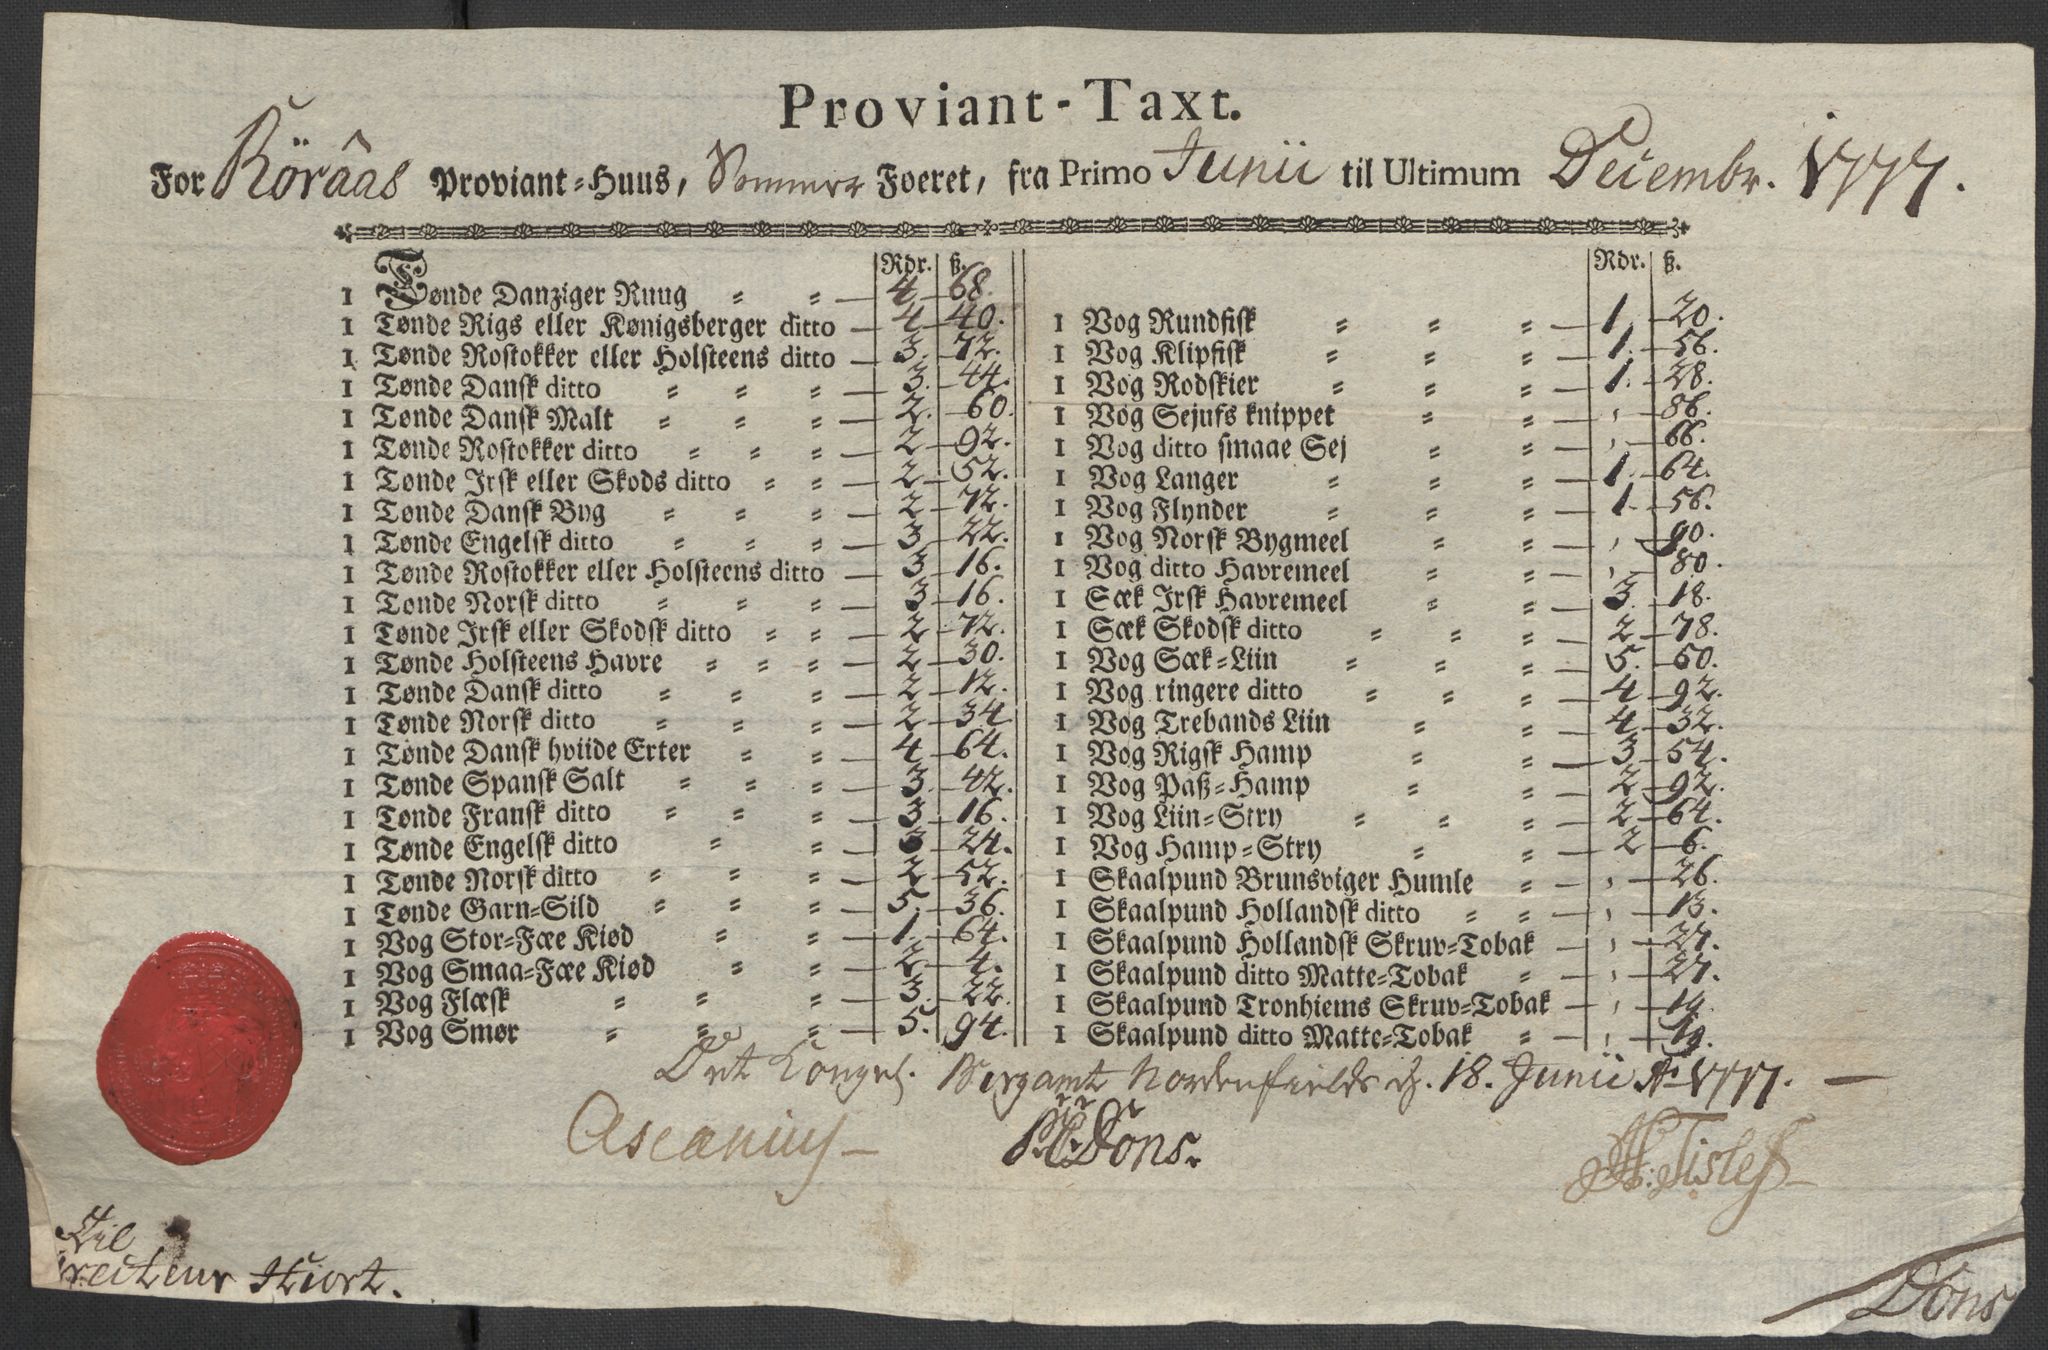 Proviant-Taxt.
For Röraas Proviant-Huus, Sommer Foeret, fra Primo Junii til Ultimum Decembr. 1777.
Rdr. ß.
1 Tønde Danziger Ruug 4 68.
1 Tønde Rigs eller Kønigsberger ditto 4 40.
1 Tønde Rostokker eller Holsteens ditto 3. 72.
1 Tønde Dansk ditto 3. 44.
1 Tønde Dansk Malt 2. 60.
1 Tønde Rostokker ditto 2 92.
1 Tønde Irsk eller Skods ditto 2 52.
1 Tønde Dansk Byg 2 72.
1 Tønde Engelsk ditto 3 22.
1 Tønde Rostokker eller Holsteens ditto 3 16.
1 Tonde Norsk ditto 3 16.
1 Tønde Irsk eller Skodsk ditto 2 72.
1 Tønde Holsteens Havre 2 30.
1 Tønde Dansk ditto 2 12.
1 Tønde Norsk ditto 2 34
1 Tønde Dansk hviide Erter 4 64.
1 Tønde Spansk Salt 3. 42.
1 Tønde Fransk ditto 3 16.
1 Tønde Engelsk ditto 3 24.
1 Tønde Norsk ditto 2 52.
1 Tønde Garn-Sild 5. 36.
1 Vog Stor-Fæe Kiød 1. 64.
1 Vog Smaa-Fæe Kiød 2 4.
1 Vog Flæsk 3. 22.
1 Vog Smør 5. 94.
Rdr. ß.
1 Vog Rundfisk 1. 20.
1 Vog Klipfisk 1. 56.
1 Vog Rodskier 1. 28.
1 Vog Sejufs knippet , 86.
1 Vog ditto smaae Sej , 66.
1 Vog Langer 1. 64.
1 Vog Flynder 1. 56.
1 Vog Norsk Bygmeel , 90.
1 Vog ditto Havremeel , 80.
1 Sæk Irsk Havremeel 3. 18.
1 Sæk Skodsk ditto 2 78.
1 Vog Sæk-Liin 5. 60.
1 Vog ringere ditto 4 92.
1 Vog Trebands Liin 4 32.
1 Vog Rigsk Hamp 3 54.
1 Vog Paß-Hamp 2 92.
1 Vog Liin-Stry 2 64.
1 Vog Hamp-Stry 2 6.
1 Skaalpund Brunsviger Humle , 26.
1 Skaalpund Hollandsk ditto , 13.
1 Skaalpund Hollandsk Skruv-Tobak , 27.
1 Skaalpund ditto Matte-Tobak , 27.
1 Skaalpund Tronhiems Skruv-Tobak , 19.
1 Skaalpund ditto Matte-Tobak , 19.
Det Kongel. Bergamt Nordenfields d. 18. Junii Ao 1777.
Ascanius
Dons.
Til
recteur Hiort.
Dons